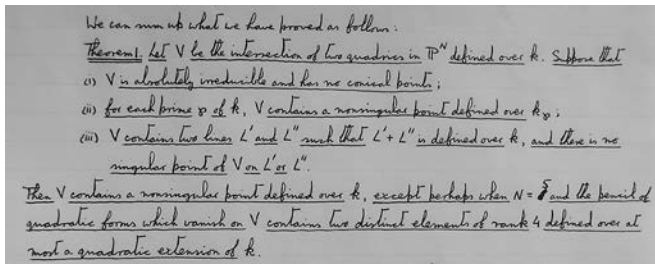 We can sum up what we have proved as follows:
Theorem 1. Let V be the intersection of two quadrics in ℙᴺ defined over k. Suppose that
(i) V is absolutely irreducible and has no conical points;
(ii) for each prime 𝔭 of k, V contains a nonsingular point defined over k_𝔭;
(iii) V contains two lines L' and L" such that L' + L" is defined over k, and there is no
singular point of V on L' or L".
Then V contains a nonsingular point defined over k, except perhaps when N = 5 and the pencil of
quadratic forms which vanish on V contains two distinct elements of rank 4 defined over at
most a quadratic extension of k.